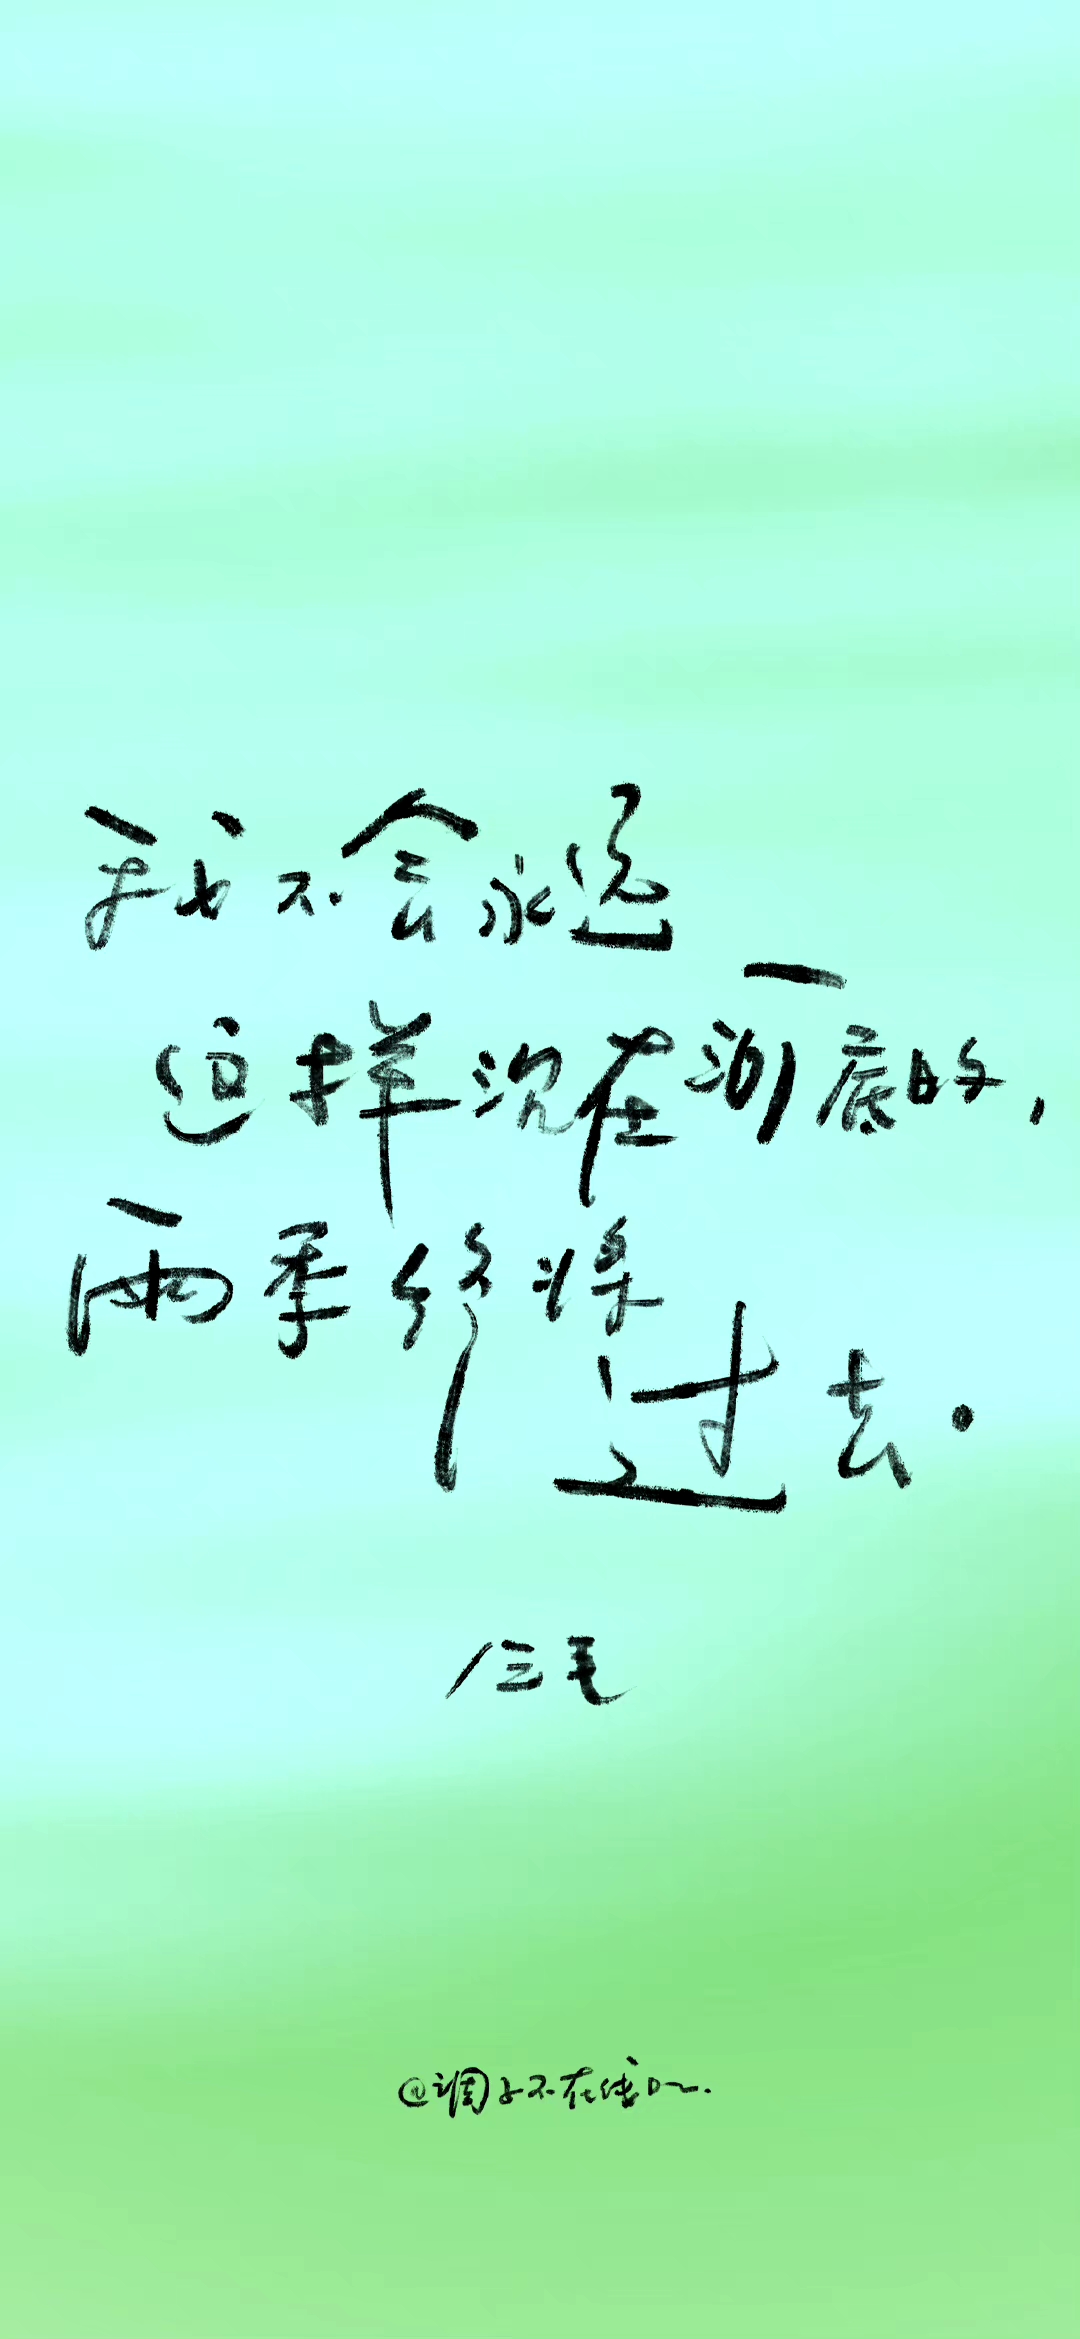 我不会永远
这样沉在河底的，
雨季终将
过去.
/三毛
@调子不在线